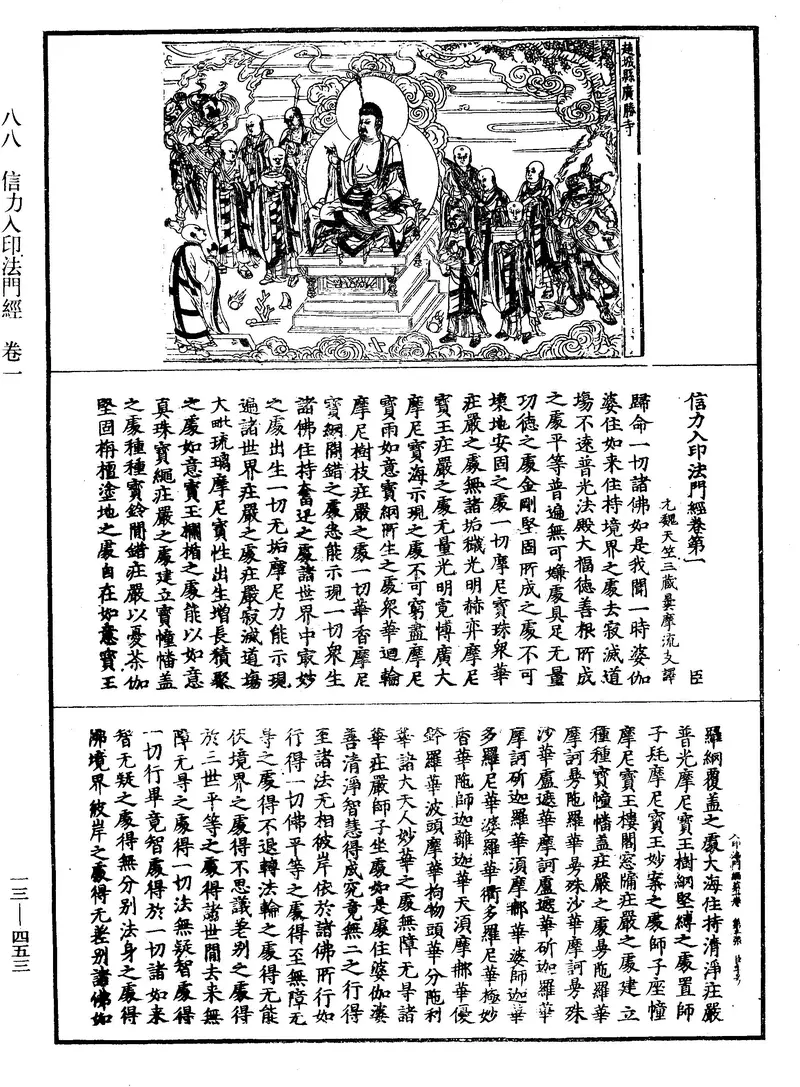 趙城縣廣勝寺
八八 信力入印法門經 卷一
一三—四五三
信力入印法門經卷第一 臣
元魏天竺三藏曇摩流支譯
歸命一切諸佛如是我聞一時婆伽
婆住如来住持境界之處去寂滅道
場不遠普光法殿大福德善根所成
之處平等普遍無可嫌處具足无量
功德之處金剛堅固所成之處不可
壞地安固之處一切摩尼寶珠衆華
莊嚴之處無諸垢穢光明赫弈摩尼
寶王莊嚴之處无量光明寬博廣大
摩尼寶海示現之處不可窮盡摩尼
寶雨如意寶網所生之處衆華迴輪
摩尼樹枝莊嚴之處一切華香摩尼
寶網閒錯之處悉能示現一切衆生
諸佛住持奮迅之處諸世界中寂妙
之處出生一切无垢摩尼力能示現
遍諸世界莊嚴之處莊嚴寂滅道場
大毗琉璃摩尼寶性出生增長積聚
之處如意寶王欄楯之處能以如意
真珠寶繩莊嚴之處建立寶幢幡盖
之處種種寶鈴閒錯莊嚴以憂茶伽
堅固栴檀塗地之處自在如意寶王
羅網覆盖之處大海住持清淨莊嚴
普光摩尼寶王樹網堅縛之處置師
子㲚摩尼寶王妙案之處師子座幢
摩尼寶王樓閣窓牖莊嚴之處建立
種種寶幢幡盖莊嚴之處曼陁羅華
摩訶曼陁羅華曼殊沙華摩訶曼殊
沙華盧遮華摩訶盧遮華斫迦羅華
摩訶斫迦羅華湏摩那華婆師迦華
多羅尼華婆羅華衢多羅尼華極妙
香華陁師迦雞迦華天湏摩那華優
鉢羅華波頭摩華拘物頭華分陁利
華諸大天人妙華之處無障无㝵諸
華莊嚴師子坐處如是處住婆伽婆
善清淨智慧得咸究竟無二之行得
至諸法无相彼岸依於諸佛所行如
行得一切佛平等之處得至無障无
㝵之處得不退轉法輪之處得无能
伏境界之處得不思議差别之處得
於三世平等之處得諸世閒去来無
障无㝵之處得一切法無疑智處得
一切行畢竟智處得於一切諸如来
智无疑之處得無分別法身之處得
佛境界彼岸之處得无差別諸佛如